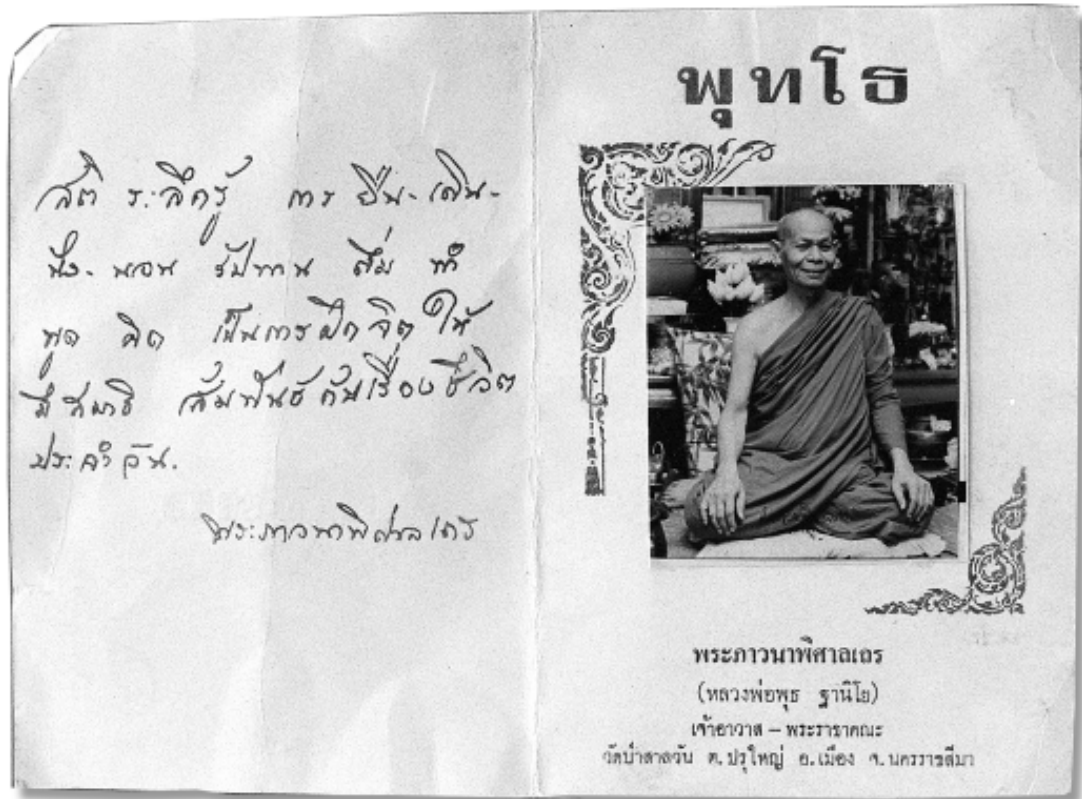 สติ ระลึกรู้ การ ยืน-เดิน-
นั่ง-นอน รับทาน ดื่ม ทำ
พูด คิด เป็นการฝึกจิตให้
มีสมาธิ สัมพันธ์กับเรื่องชีวิต
ประจำวัน.
พระภาวนาพิศาลเถร
พุทโธ
พระภาวนาพิศาลเถร
(หลวงพ่อพุธ ฐานิโย)
เจ้าอาวาส – พระราชาคณะ
วัดป่าสาลวัน ต.ปรุใหญ่ อ.เมือง จ.นครราชสีมา